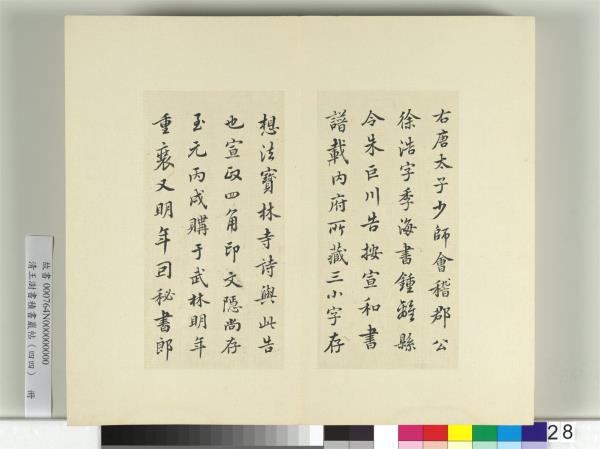 右唐太子少師會稽郡公
徐浩字季海書鍾離縣
令朱巨川告按宣和書
譜載内府所藏三小字存
想法寶林寺詩與此告
也宣政四角印文隱尚存
至元丙戌購于武林明年
重裝又明年司秘書郎
故書 000764N000000000
清王澍書積書巖帖(四四) 冊
28